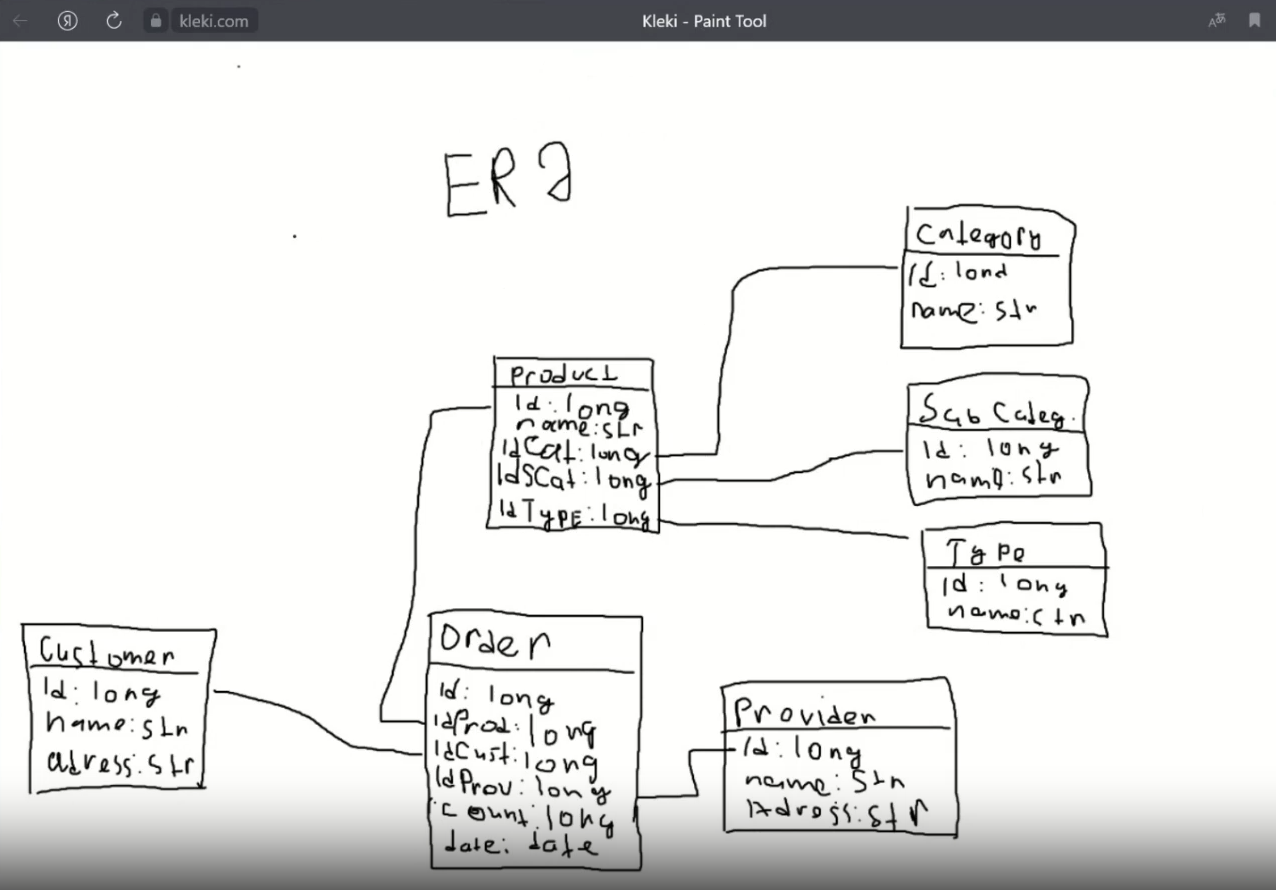 kleki.com
Kleki - Paint Tool
ER
Category
id: lond
name: str
Product
id: long
name: str
IdCat: long
IdSCat: long
IdType: long
Sab Categ.
id: long
name: str
Type
id: long
name: str
Customer
id: long
name: str
adress: str
Order
id: long
idProd: long
idCust: long
idProv: long
count: long
date: date
Provider
id: long
name: str
Adress: str